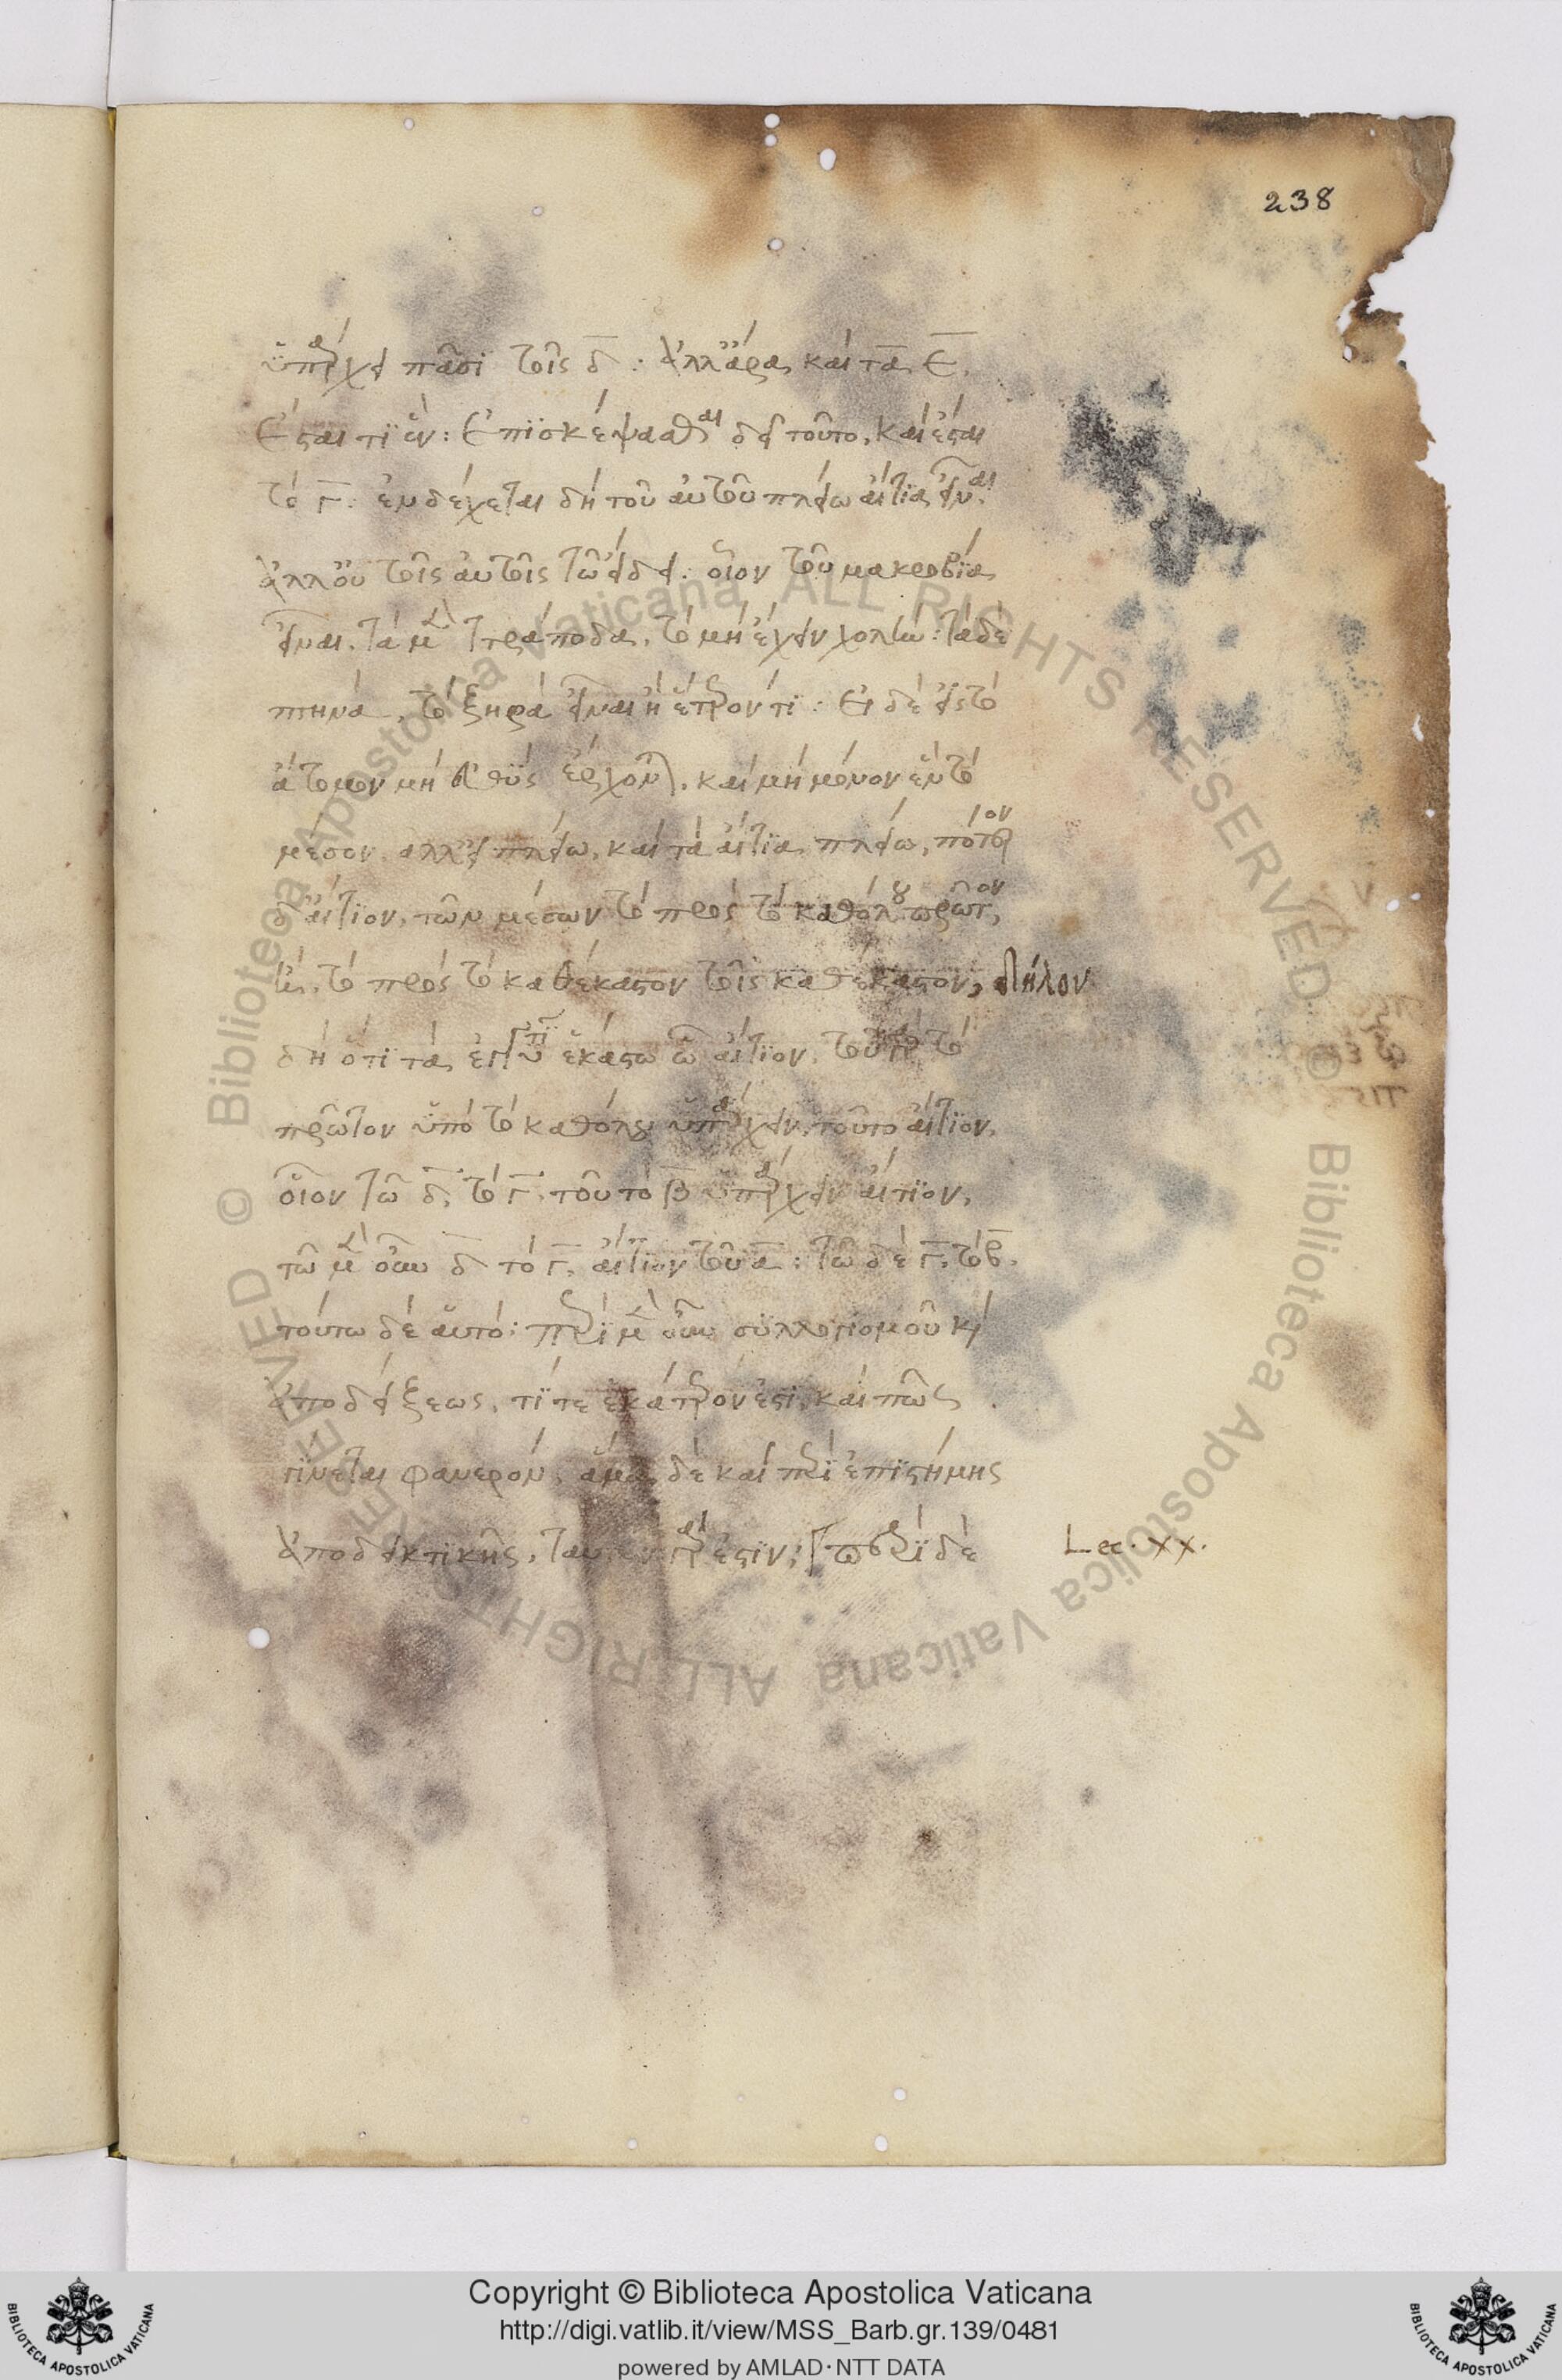 238
ὑπάρχει πᾶσι τοῖς δ̅: ἀλλ' ἄρα καὶ τὰ ε̅.
ἔσται τι ἕν: ἐπισκέψασθαι δεῖ τοῦτο, καὶ ἔσται
τὸ γ̅: ἐνδέχεται δὴ τοῦ αὐτοῦ πλείω αἴτια εἶναι.
ἀλλ' οὐ τοῖς αὐτοῖς τῷ εἴδει: οἷον τοῦ μακρόβια
εἶναι, τὰ μὲν τετράποδα, τὸ μὴ ἔχειν χολήν: τὰ δὲ
πτηνὰ, τὸ ξηρὰ εἶναι ἢ ἕτερόν τι: εἰ δὲ εἰς τὸ
ἄτομον μὴ εὐθὺς ἔρχονται, καὶ μὴ μόνον ἓν τὸ
μέσον ἀλλὰ πλείω, καὶ τὰ αἴτια πλείω, πότερον
δ' αἴτιον, τῶν μέσων τὸ πρὸς τὸ καθόλου πρῶτον,
ἢ, τὸ πρὸς τὸ καθέκαστον τοῖς καθέκαστον, δῆλον
δὴ ὅτι τὰ ἐγγύτατα ἑκάστῳ ᾧ αἴτιον. τοῦ γὰρ τὸ
πρῶτον ὑπὸ τὸ καθόλου ὑπάρχειν, τοῦτο αἴτιον,
οἷον τῷ δ̅, τὸ γ̅, τοῦ τὸ β̅ ὑπάρχειν αἴτιον,
τῷ μὲν οὖν δ̅ τὸ γ̅, αἴτιον τοῦ α̅: τῷ δὲ γ̅, τὸ β̅.
τούτῳ δὲ αὐτό: περὶ μὲν οὖν συλλογισμοῦ καὶ
ἀποδείξεως, τί τε ἑκάτερόν ἐστι, καὶ πῶς
γίνεται φανερόν, ἅμα δὲ καὶ περὶ ἐπιστήμης
ἀποδεικτικῆς, ταυτὸν γάρ ἐστιν: περὶ δὲ
Lec. xx.
Copyright © Biblioteca Apostolica Vaticana
http://digi.vatlib.it/view/MSS_Barb.gr.139/0481
powered by AMLAD·NTT DATA